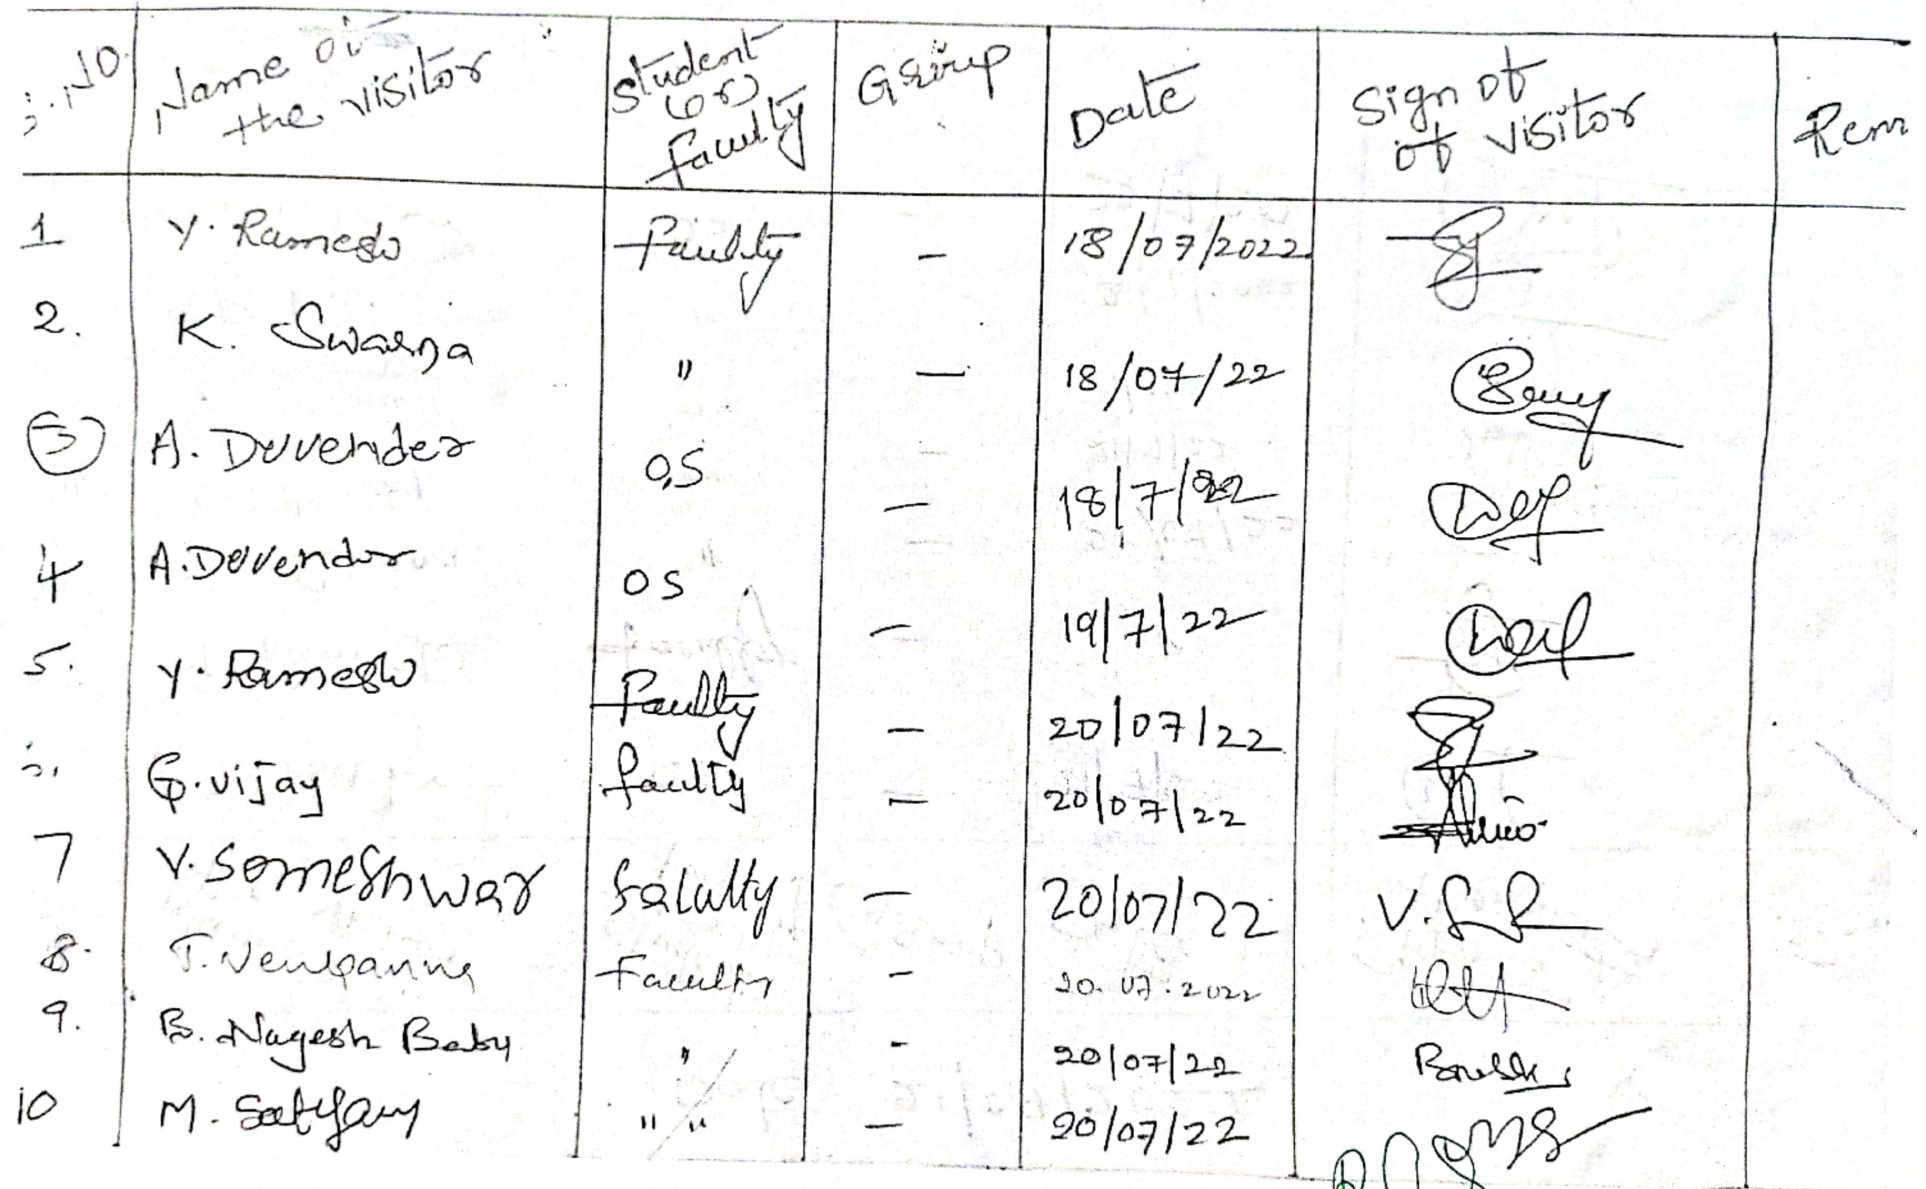 S.No. Name of the visitor Student (or) faculty Group Date Sign of of visitor Rem
1 Y. Ramesh Faculty - 18/07/2022
2. K. Swarna " - 18/07/22
3 A. Devender O.S - 18/7/22
4 A. Devender OS " - 19/7/22
5. Y. Ramesh Faculty - 20/07/22
G. vijay faculty - 20/07/22
7 V. Someshwar falulty - 20/07/22 V.
8. T. Faculty - 20.07.2022
9. B. Nagesh Babu " - 20/07/22
10 M. " " - 20/07/22